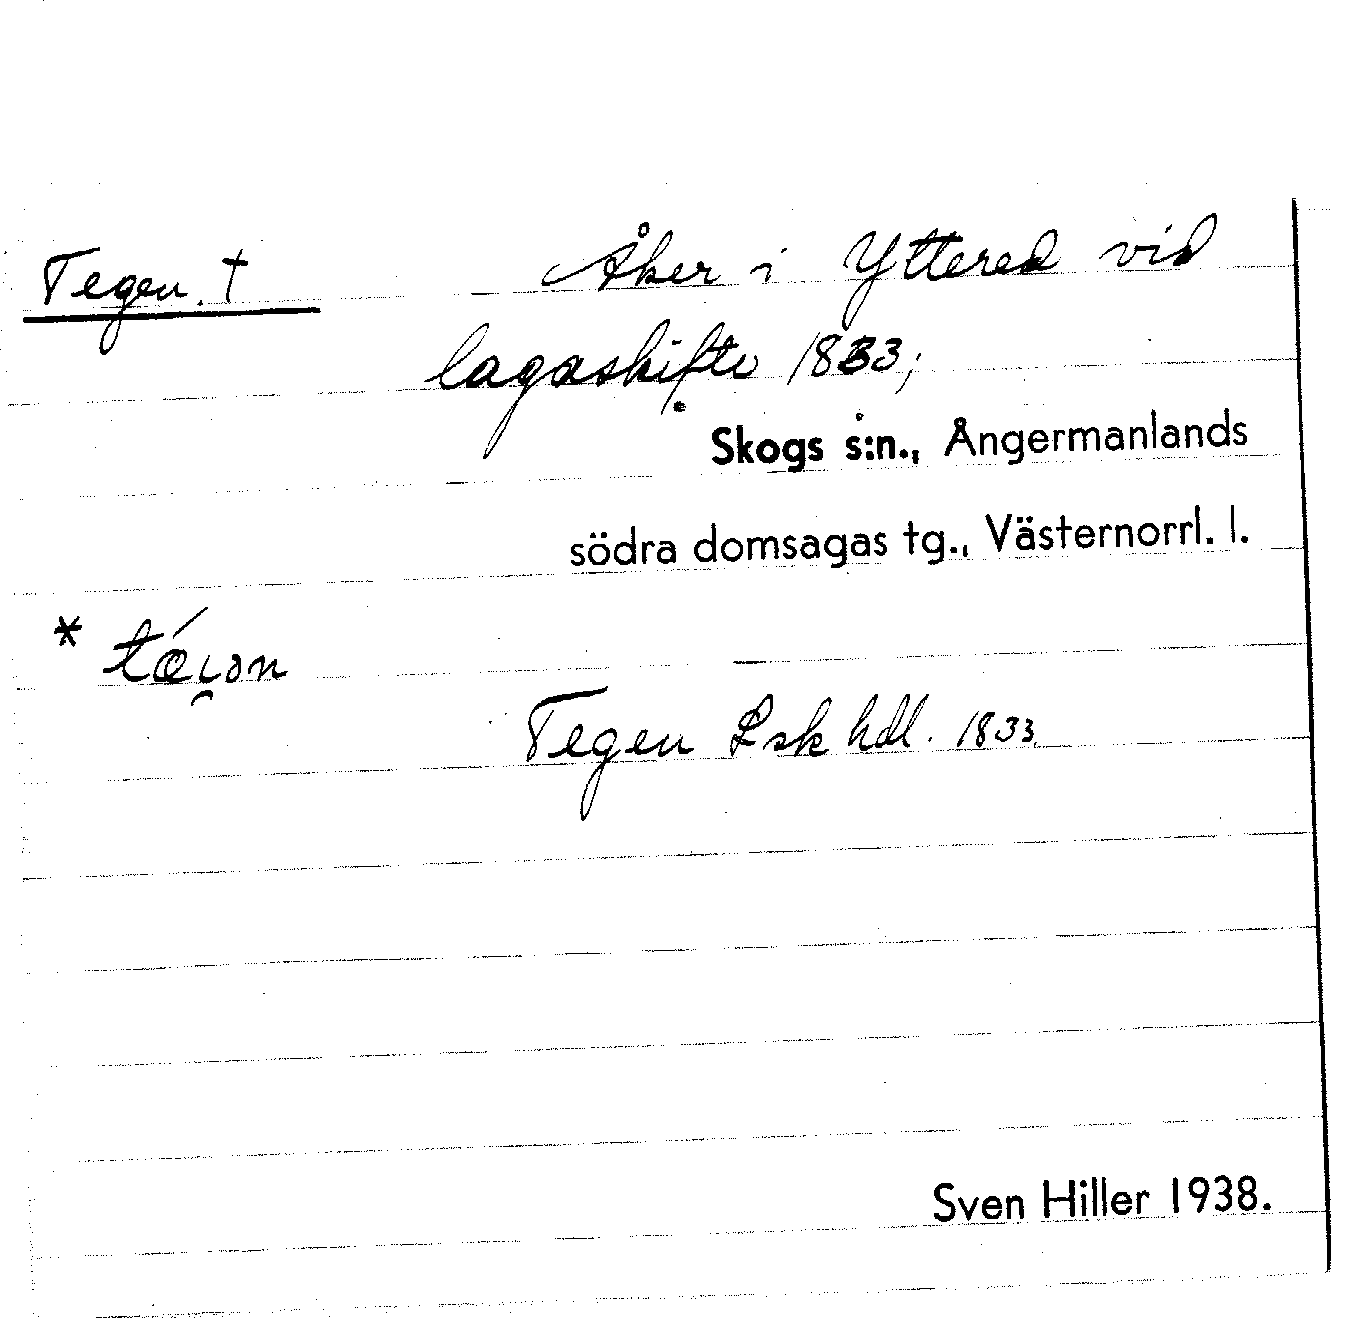 Tegen. † Åker i Yttered vid
lagaskifte 1833;
Skogs s:n., Ångermanlands
södra domsagas tg., Västernorrl. l.
* tæ´i̯ən
Tegen Lsk hdl. 1833.
Sven Hiller 1938.